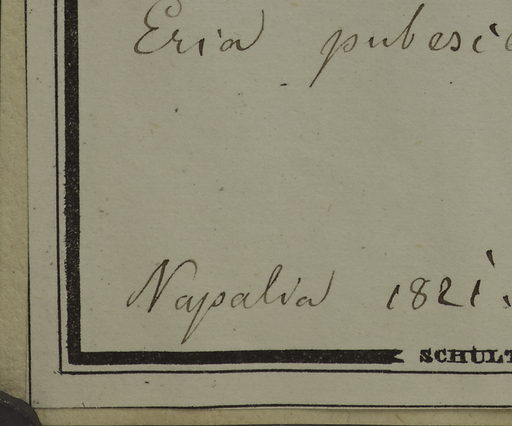 Eria pubesc
Napalia 1821.
SCHULT